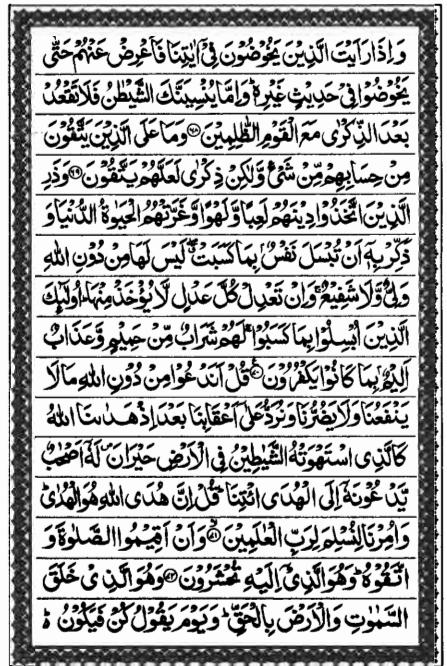 وَاِذَا رَاَيْتَ الَّذِيْنَ يَخُوْضُوْنَ فِيْۤ اٰيٰتِنَا فَاَعْرِضْ عَنْهُمْ حَتّٰى
يَخُوْضُوْا فِيْ حَدِيْثٍ غَيْرِهٖ ؕ وَاِمَّا يُنْسِيَنَّكَ الشَّيْطٰنُ فَلَا تَقْعُدْ
بَعْدَ الذِّكْرٰى مَعَ الْقَوْمِ الظّٰلِمِيْنَ ﴿۶۸﴾ وَمَا عَلَى الَّذِيْنَ يَتَّقُوْنَ
مِنْ حِسَابِهِمْ مِّنْ شَيْءٍ وَّلٰكِنْ ذِكْرٰى لَعَلَّهُمْ يَتَّقُوْنَ ﴿۶۹﴾ وَذَرِ
الَّذِيْنَ اتَّخَذُوْا دِيْنَهُمْ لَعِبًا وَّلَهْوًا وَّغَرَّتْهُمُ الْحَيٰوةُ الدُّنْيَا وَ
ذَكِّرْ بِهٖۤ اَنْ تُبْسَلَ نَفْسٌۢ بِمَا كَسَبَتْ ۖ لَيْسَ لَهَا مِنْ دُوْنِ اللّٰهِ
وَلِيٌّ وَّلَا شَفِيْعٌ ۚ وَاِنْ تَعْدِلْ كُلَّ عَدْلٍ لَّا يُؤْخَذْ مِنْهَا ؕ اُولٰٓئِكَ
الَّذِيْنَ اُبْسِلُوْا بِمَا كَسَبُوْا ۚ لَهُمْ شَرَابٌ مِّنْ حَمِيْمٍ وَّعَذَابٌ
اَلِيْمٌۢ بِمَا كَانُوْا يَكْفُرُوْنَ ﴿۷۰﴾ قُلْ اَنَدْعُوْا مِنْ دُوْنِ اللّٰهِ مَا لَا
يَنْفَعُنَا وَلَا يَضُرُّنَا وَنُرَدُّ عَلٰۤى اَعْقَابِنَا بَعْدَ اِذْ هَدٰىنَا اللّٰهُ
كَالَّذِى اسْتَهْوَتْهُ الشَّيٰطِيْنُ فِي الْاَرْضِ حَيْرَانَ ۪ لَهٗۤ اَصْحٰبٌ
يَّدْعُوْنَهٗۤ اِلَى الْهُدَى ائْتِنَا ؕ قُلْ اِنَّ هُدَى اللّٰهِ هُوَ الْهُدٰى ؕ
وَاُمِرْنَا لِنُسْلِمَ لِرَبِّ الْعٰلَمِيْنَ ﴿۷۱﴾ وَاَنْ اَقِيْمُوا الصَّلٰوةَ وَ
اتَّقُوْهُ ؕ وَهُوَ الَّذِيْۤ اِلَيْهِ تُحْشَرُوْنَ ﴿۷۲﴾ وَهُوَ الَّذِيْ خَلَقَ
السَّمٰوٰتِ وَالْاَرْضَ بِالْحَقِّ ؕ وَيَوْمَ يَقُوْلُ كُنْ فَيَكُوْنُ ؕ